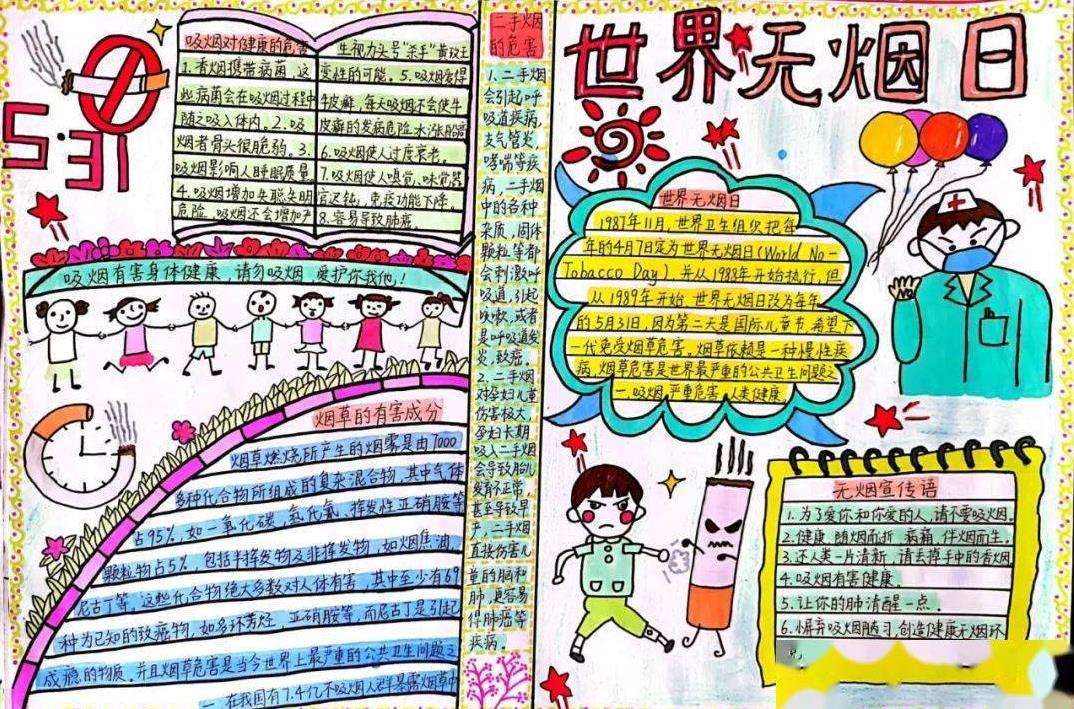 5.31
吸烟对健康的危害
1.香烟携带病菌,这
些病菌会在吸烟过程中
随之吸入体内,2.吸
烟者骨头很脆弱。3.
吸烟影响人睡眠质量
4.吸烟增加失聪失明
危险,吸烟还会增加产
生视力头号"杀手"黄斑
变性的可能。5.吸烟会得
牛皮癣,每天吸烟不会使牛
皮癣的发病危险水涨船高
6.吸烟使人过度衰老。
7.吸烟使人嗅觉,味觉器
官迟钝,免疫功能下降
8.容易导致肺癌。
吸烟有害身体健康,请勿吸烟,爱护你我他!
烟草的有害成分
烟草燃烧所产生的烟雾是由7000
多种化合物所组成的复杂混合物,其中气体
占95%,如一氧化碳,氢化氰、挥发性亚硝胺等
颗粒物占5%,包括半挥发物及非挥发物,如烟焦油,
尼古丁等,这些化合物绝大多数对人体有害,其中至少有69
种为已知的致癌物,如多环芳烃,亚硝胺等,而尼古丁是引起
成瘾的物质,并且烟草危害是当今世界上最严重的公共卫生问题之
一,在我国有7.4亿不吸烟人群暴露烟草中
二手烟
的危害
1.二手烟
会引起呼
吸道疾病,
支气管炎,
哮喘等疾
病,二手烟
中的各种
杂质,固体
颗粒等都
会刺激呼
吸道,引起
咳嗽,或者
是呼吸道发
炎,致癌。
2.二手烟
对孕妇儿童
伤害极大,
孕妇长期
吸入二手烟
会导致胎儿
发育不正常,
甚至导致早
产,二手烟
直接伤害儿
童的脑和
肺,更容易
得肺癌等
疾病。
世界无烟日
世界无烟日
1987年11月,世界卫生组织把每
年的4月7日定为世界无烟日(World No-
Tobacco Day),并从1988年开始执行,但
从1989年开始,世界无烟日改为每年
的5月31日,因为第二天是国际儿童节,希望下
一代免受烟草危害。烟草依赖是一种慢性疾
病,烟草危害是世界最严重的公共卫生问题之
一,吸烟严重危害人类健康
No
无烟宣传语
1.为了爱你和你爱的人,请不要吸烟。
2.健康,随烟而折,病痛,伴烟而生。
3.还人类一片清新,请丢掉手中的香烟
4.吸烟有害健康.
5.让你的肺清醒一点.
6.摒弃吸烟陋习,创造健康无烟环